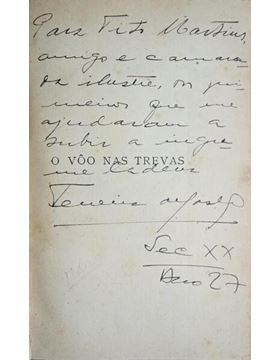 Para Tito Martins,
amigo e camara-
da ilustre, os pri-
meiros que me
ajudaram a
subir a ingre-
O VÔO NAS TREVAS
me ladeira
Sec XX
Ano 27